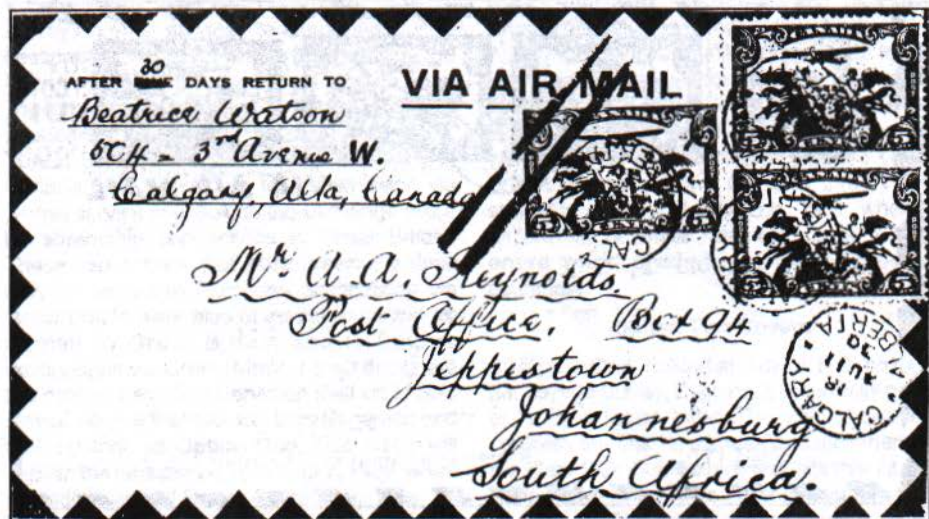 AFTER 30 DAYS RETURN TO
VIA AIR MAIL
Beatrice Watson
504 - 3rd Avenue W.
Calgary, Alta, Canada
Mr A A Reynolds.
Post Office. Box 94
Jeppestown
Johannesburg
South Africa.
CALGARY
ALBERTA
30